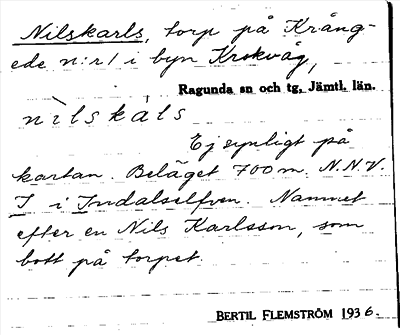 Nilskarls, torp på Krång-
ede n:r 1 i byn Krokvåg,
Ragunda sn och tg, Jämtl. län.
nìlskáls
Ej synligt på
kartan. Beläget 700 m. N.N.V.
I i Indalselfven. Namnet
efter en Nils Karlsson, som
bott på torpet.
BERTIL FLEMSTRÖM 1936.